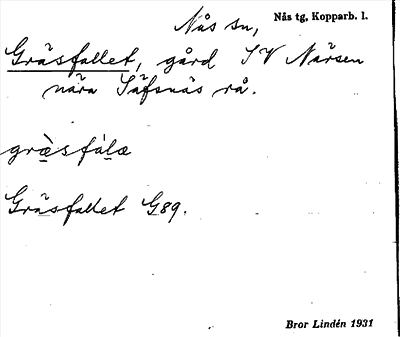 Nås sn, Nås tg, Kopparb. l.
Gräsfallet, gård SV Närsen
nära Säfsnäs rå.
græ̀sfálæ
Gräsfallet G89.
Bror Lindén 1931